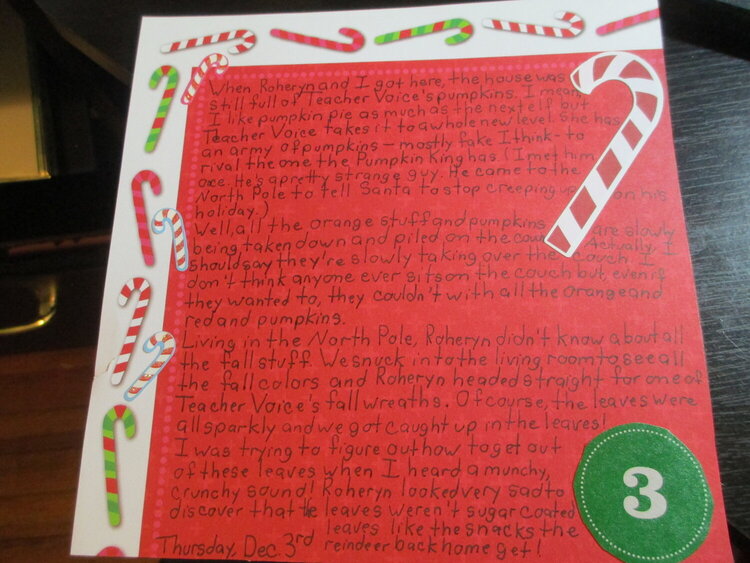 When Roheryn and I got here, the house was
still full of Teacher Voice's pumpkins. I mean
I like pumpkin pie as much as the next elf but
Teacher Voice takes it to a whole new level. She has
an army of pumpkins - mostly fake I think - to
rival the one the Pumpkin King has. (I met him
once. He's a pretty strange guy. He came to the
North Pole to tell Santa to stop creeping up on his
holiday.)
Well, all the orange stuff and pumpkins are slowly
being taken down and piled on the couch. Actually, I
should say they're slowly taking over the couch. I
don't think anyone ever sits on the couch but, even if
they wanted to, they couldn't with all the orange and
red and pumpkins.
Living in the North Pole, Roheryn didn't know about all
the fall stuff. We snuck into the living room to see all
the fall colors and Roheryn headed straight for one of
Teacher Voice's fall wreaths. Of course, the leaves were
all sparkly and we got caught up in the leaves!
I was trying to figure out how to get out
of these leaves when I heard a munchy,
crunchy sound! Roheryn looked very sad to
discover that the leaves weren't sugar coated
leaves like the snacks the
reindeer back home get!
Thursday, Dec. 3rd
3